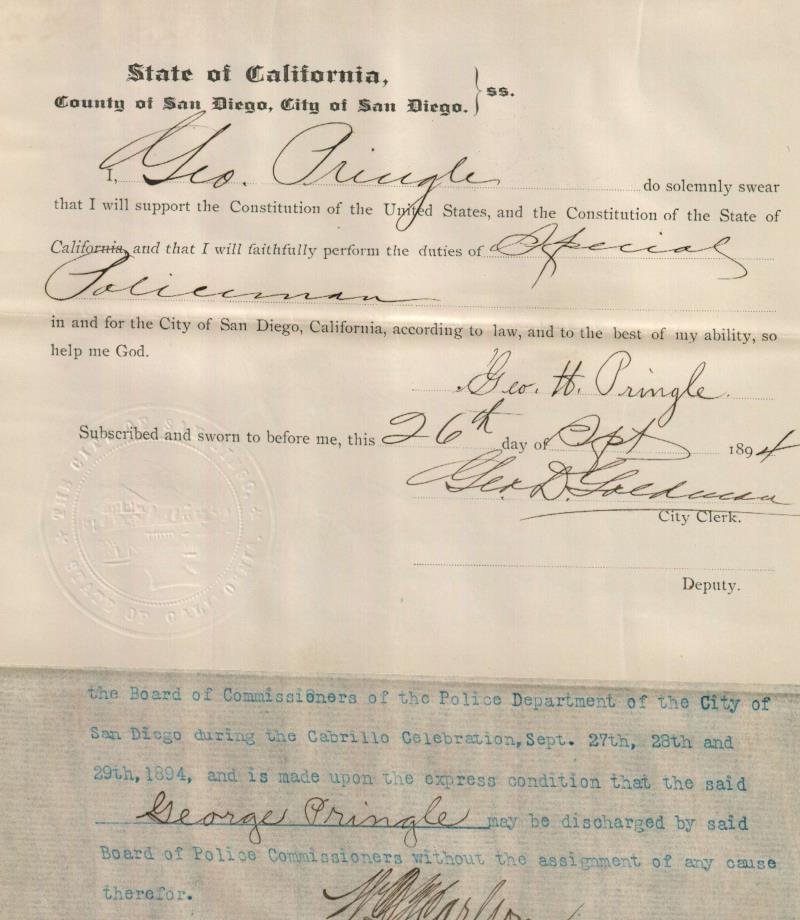 State of California,
County of San Diego, City of San Diego. } ss.
I, Geo. Pringle do solemnly swear
that I will support the Constitution of the United States, and the Constitution of the State of
California, and that I will faithfully perform the duties of Special
Policeman
in and for the City of San Diego, California, according to law, and to the best of my ability, so
help me God.
Geo. H. Pringle.
Subscribed and sworn to before me, this 26th day of Spt 1894
Geo. D. Goldman
City Clerk.
Deputy.
THE CITY OF SAN DIEGO,
STATE OF CALIFORNIA.
the Board of Commissioners of the Police Department of the City of
San Diego during the Cabrillo Celebration, Sept. 27th, 28th and
29th, 1894, and is made upon the express condition that the said
George Pringle may be discharged by said
Board of Police Commissioners without the assignment of any cause
therefor.
Carlson